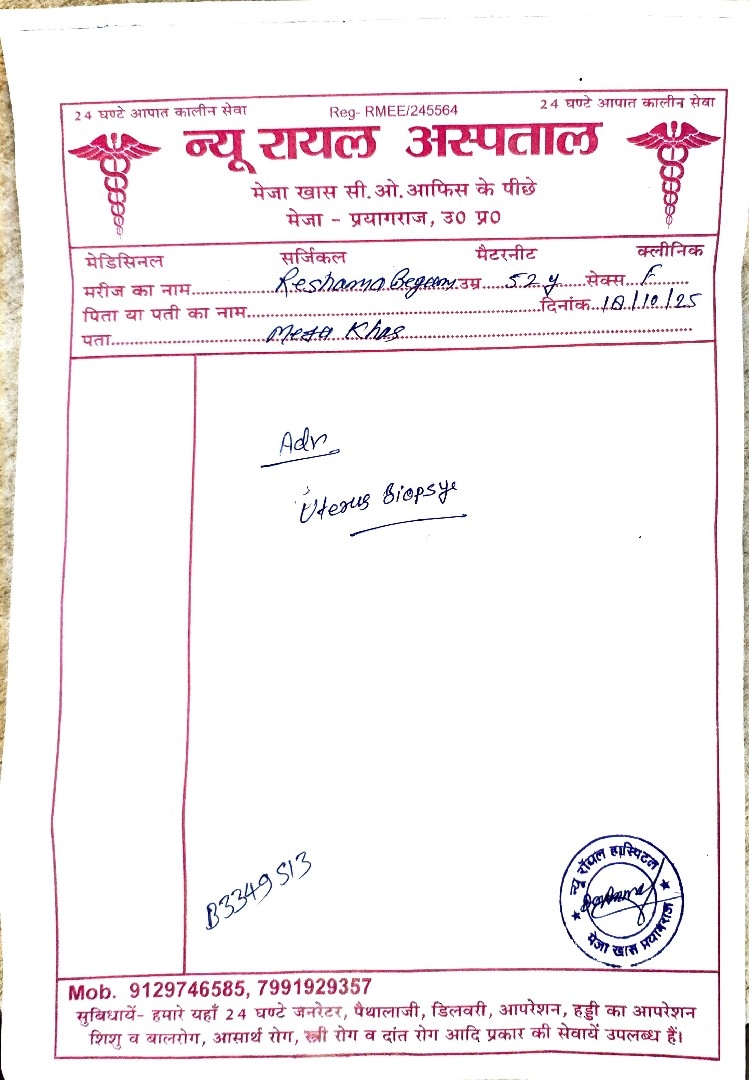 24 घण्टे आपात कालीन सेवा Reg- RMEE/245564 24 घण्टे आपात कालीन सेवा
न्यू रायल अस्पताल
मेजा खास सी.ओ.आफिस के पीछे
मेजा - प्रयागराज, उ0 प्र0
मेडिसिनल सर्जिकल मैटरनीट क्लीनिक
मरीज का नाम Reshama Begam उम्र 52 y सेक्स F
पिता या पती का नाम दिनांक 18/10/25
पता Meja Khas
Adv.
Uterus Biopsye
B3349513
न्यू रॉयल हास्पिटल
मेजा खास प्रयागराज
Mob. 9129746585, 7991929357
सुबिधायें- हमारे यहाँ 24 घण्टे जनरेटर, पैथालाजी, डिलवरी, आपरेशन, हड्डी का आपरेशन
शिशु व बालरोग, आसार्थ रोग, स्त्री रोग व दांत रोग आदि प्रकार की सेवायें उपलब्ध हैं।